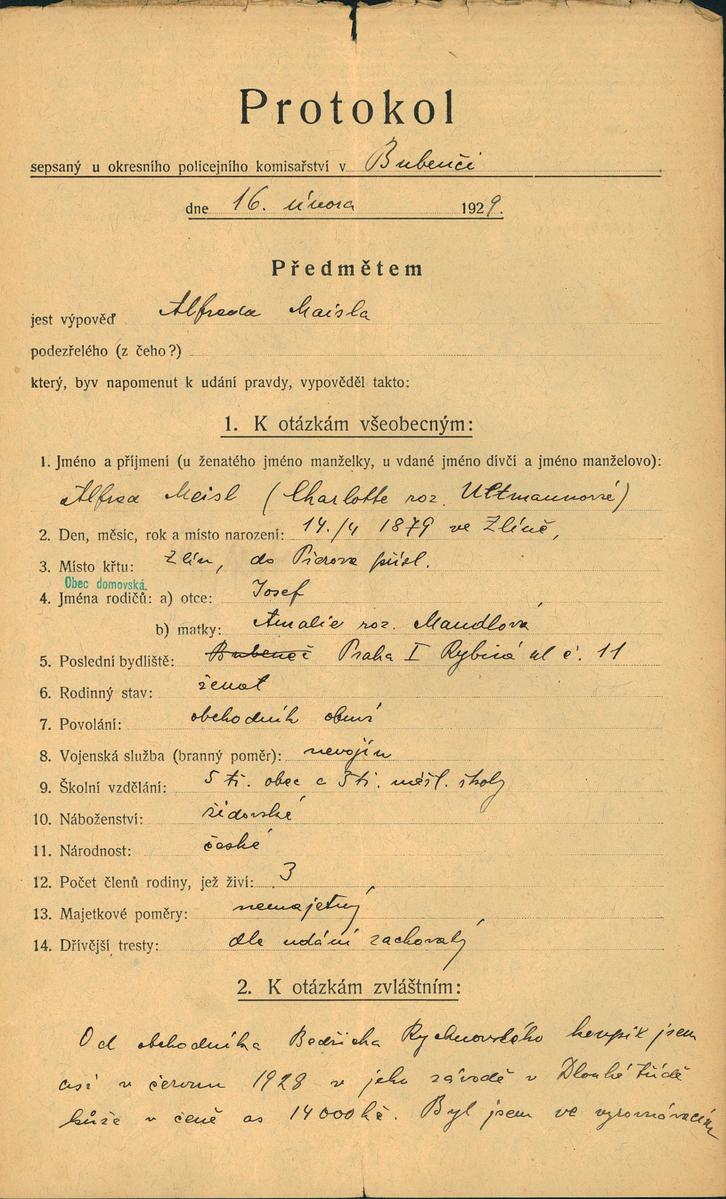 Protokol
sepsaný u okresního policejního komisařství v Bubenči
dne 16. února 1929.
Předmětem
jest výpověď Alfreda Maisla
podezřelého (z čeho?)
který, byv napomenut k udání pravdy, vypověděl takto:
1. K otázkám všeobecným:
1. Jméno a příjmení (u ženatého jméno manželky, u vdané jméno dívčí a jméno manželovo):
Alfred Meisl (Charlotte roz. Ultmannové)
2. Den, měsíc, rok a místo narození: 14./4 1879 ve Zlíně,
3. Místo křtu: Zlín, do Přerova přísl.
Obec domovská
4. Jména rodičů: a) otce: Josef
b) matky: Amalie roz. Mandlová
5. Poslední bydliště: Bubeneč Praha I Rybná ul č. 11
6. Rodinný stav: ženat
7. Povolání: obchodník obuví
8. Vojenská služba (branný poměr): nevojín
9. Školní vzdělání: 5 tř. obec a 3 tř. měšť. školy
10. Náboženství: židovské
11. Národnost: české
12. Počet členů rodiny, jež živí: 3
13. Majetkové poměry: nemajetný
14. Dřívější tresty: dle udání zachovalý
2. K otázkám zvláštním:
Od obchodníka Bedřicha Rychnovského koupil jsem
asi v červnu 1928 v jeho závodě v Dlouhé třídě
kůže v ceně as 14000 kč. Byl jsem ve vyrovnávacím